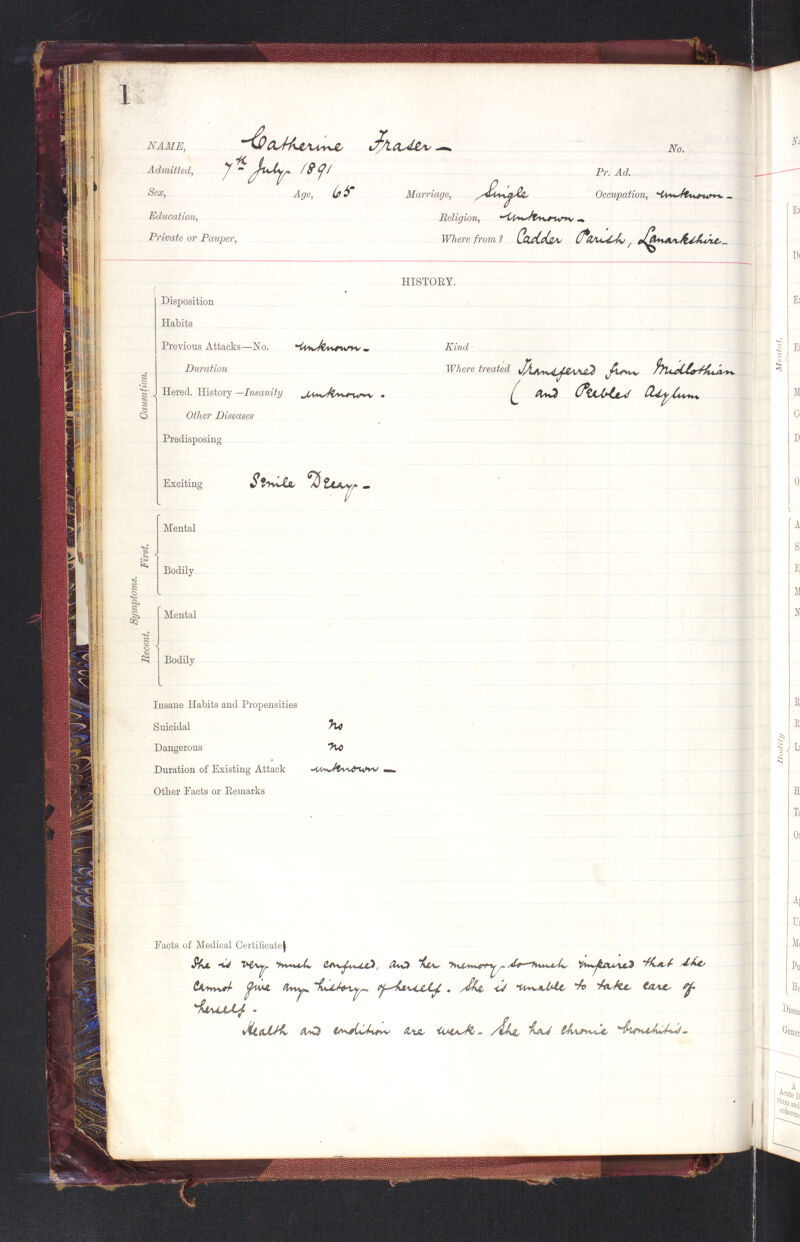 1
NAME, Catherine Fraser — No.
Admitted, 7th July 1891 Pr. Ad.
Sex, Age, 65 Marriage, Single Occupation, unknown —
Education, Religion, unknown —
Private or Pauper, Where from? Cadder Parish, Lanarkshire —
HISTORY.
Causation.
Disposition
Habits
Previous Attacks—No. unknown — Kind
Duration Where treated Transferred from Midlothian
Hered. History—Insanity unknown - ( and Peebles Asylum
Other Diseases
Predisposing
Exciting Senile Decay —
Symptoms.
First.
Mental
Bodily
Recent.
Mental
Bodily
Insane Habits and Propensities
Suicidal No
Dangerous No
Duration of Existing Attack unknown —
Other Facts or Remarks
Facts of Medical Certificate
She is very much confused, and her memory so much impaired that she
cannot give any history of herself. She is unable to take care of
herself -
Health and condition are weak - She has chronic bronchitis -
Mental.
Bodily